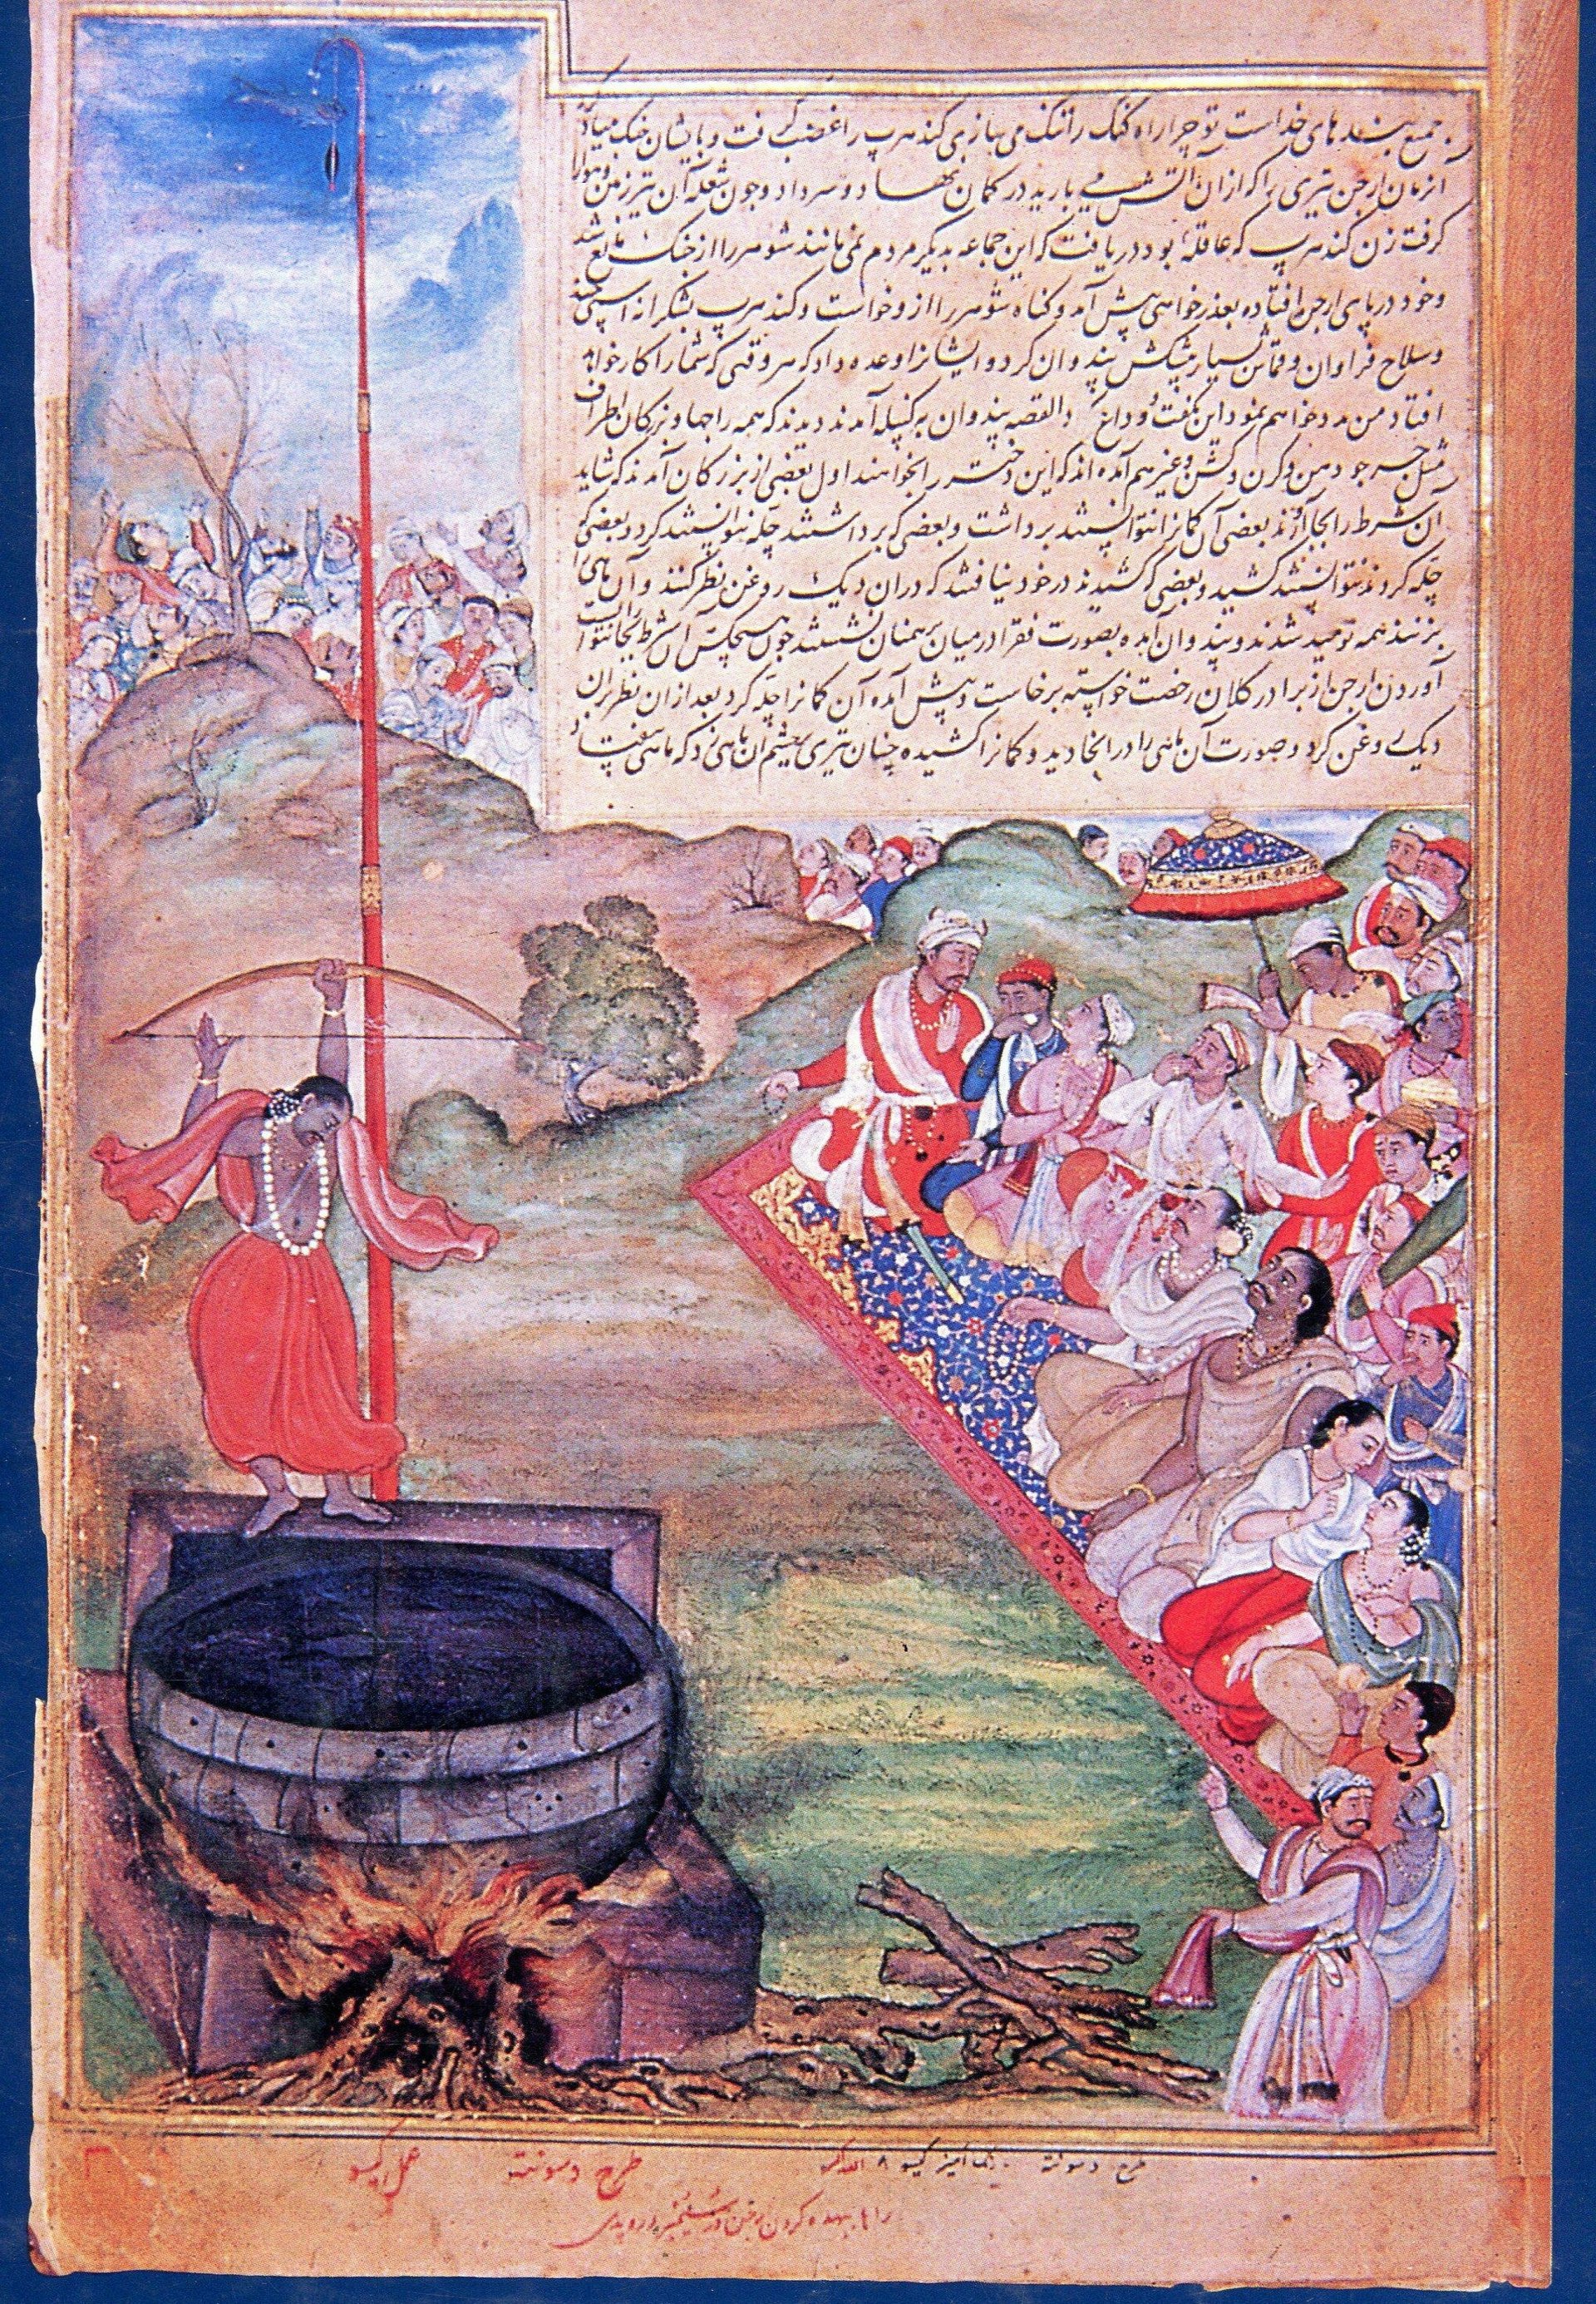 جمیع بنده های خداست تو چرا راه کنک را تنک می سازی کندهرپ را غضب گرفت و با ایشان جنک بنیاد
از مان ارجن تیری را که ازان آتش می بارید در کمان نهاد و سر داد و چون شعله آن تیر زمین و هوا را
کرفت زن کندهرپ که عاقله بود دریافت که این جماعه بدیکر مردم نمی مانند شوهر را از جنک مانع شد
و خود در پای ارجن افتاده بعذر خواهی پیش آمد و کناه شوهر را از و خواست و کندهرپ بشکرانه اسپی چند
و سلاح فراوان و قماش بسیار پیشکش پندوان کرد و ایشانرا وعده داد که هر وقتی که شما را کار خواهد
افتاد من مدد خواهم نمود این کفت و وداع والقصه پندوان به کنپله آمدند دیدند که همه راجها و بزرکان اطراف
مثل جرجودهن و کرن و کشن و غیرهم آمده اند که این دختر را بخواهند اول بعضی از بزرکان آمدند که شاید
آن شرط را بجا آرند بعضی آن کمانرا نتوانستند برداشت و بعضی که برداشتند چله نتوانستند کرد و بعضی که
چله کردند نتوانستند کشید و بعضی که کشیدند در خود نیافتند که دران دیک روغن نظر کنند و آن ماهی را
بزنند همه نومید شدند و پندوان آمده بصورت فقرا در میان برهمنان نشستند چون هیچکس آن شرط بجا نتوانست
آوردن ارجن از برادر کلان رخصت خواسته برخاست و پیش آمده آن کمانرا چله کرد بعد از ان نظر بران
دیک روغن کرد و صورت آن ماهی را در انجا دید و کمانرا کشیده چنان تیری بچشم آن ماهی زد که ماهی بیفتاد
طرح دسونته رنک امیز کیسو
طرح دسونته عمل کیسو
کردن ارجن در سینمبر دروپدی